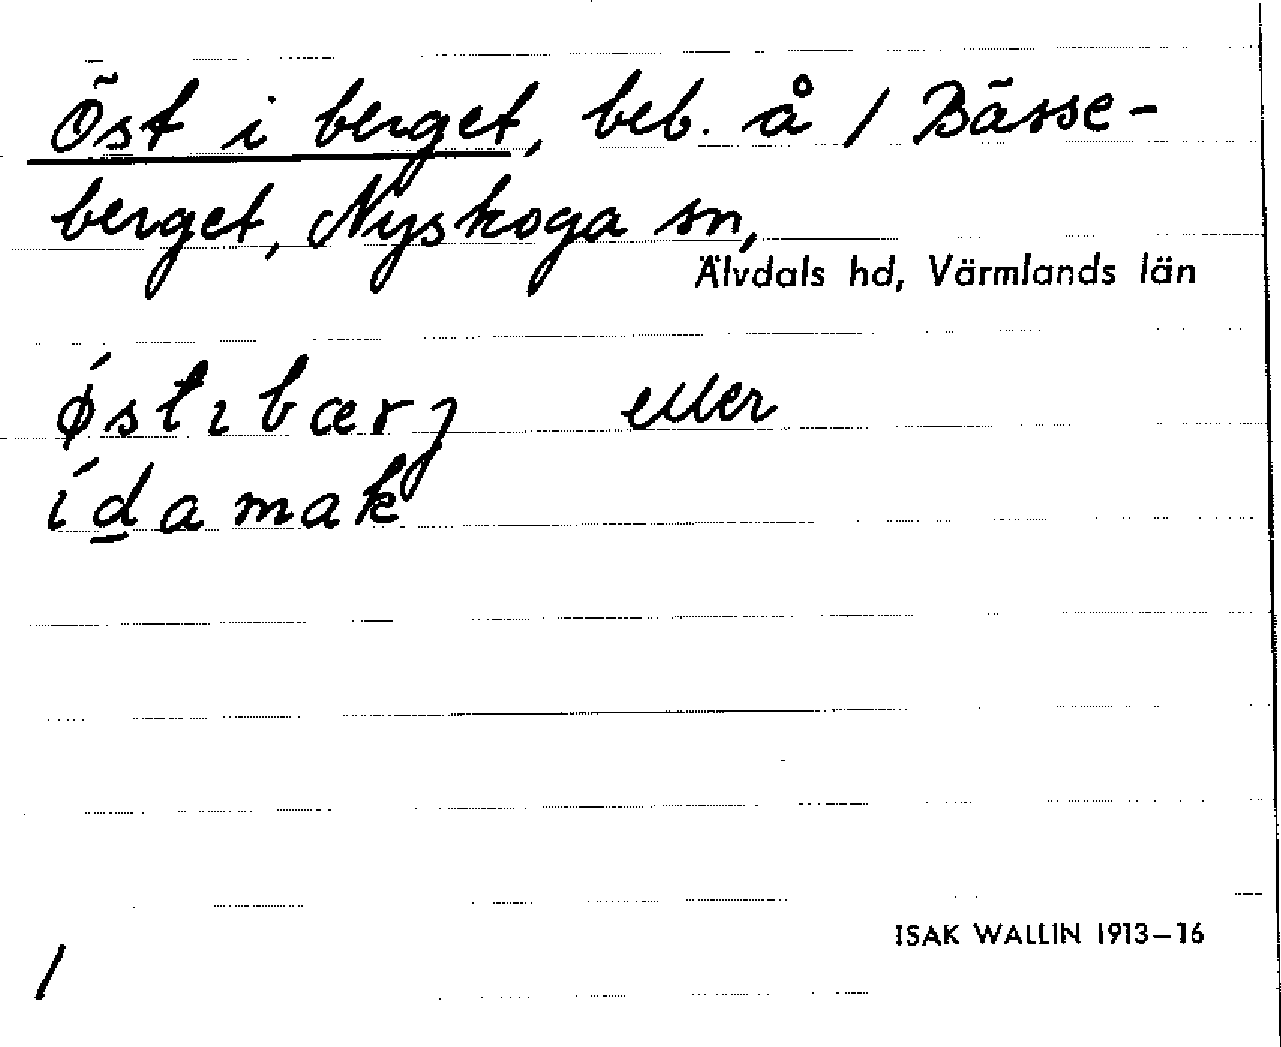 Öst i berget, beb. å / Bässe-
berget, Nyskoga sn,
Älvdals hd, Värmlands län
ǿstɩbærȷ eller
íd̲amak
ISAK WALLIN 1913–16
/